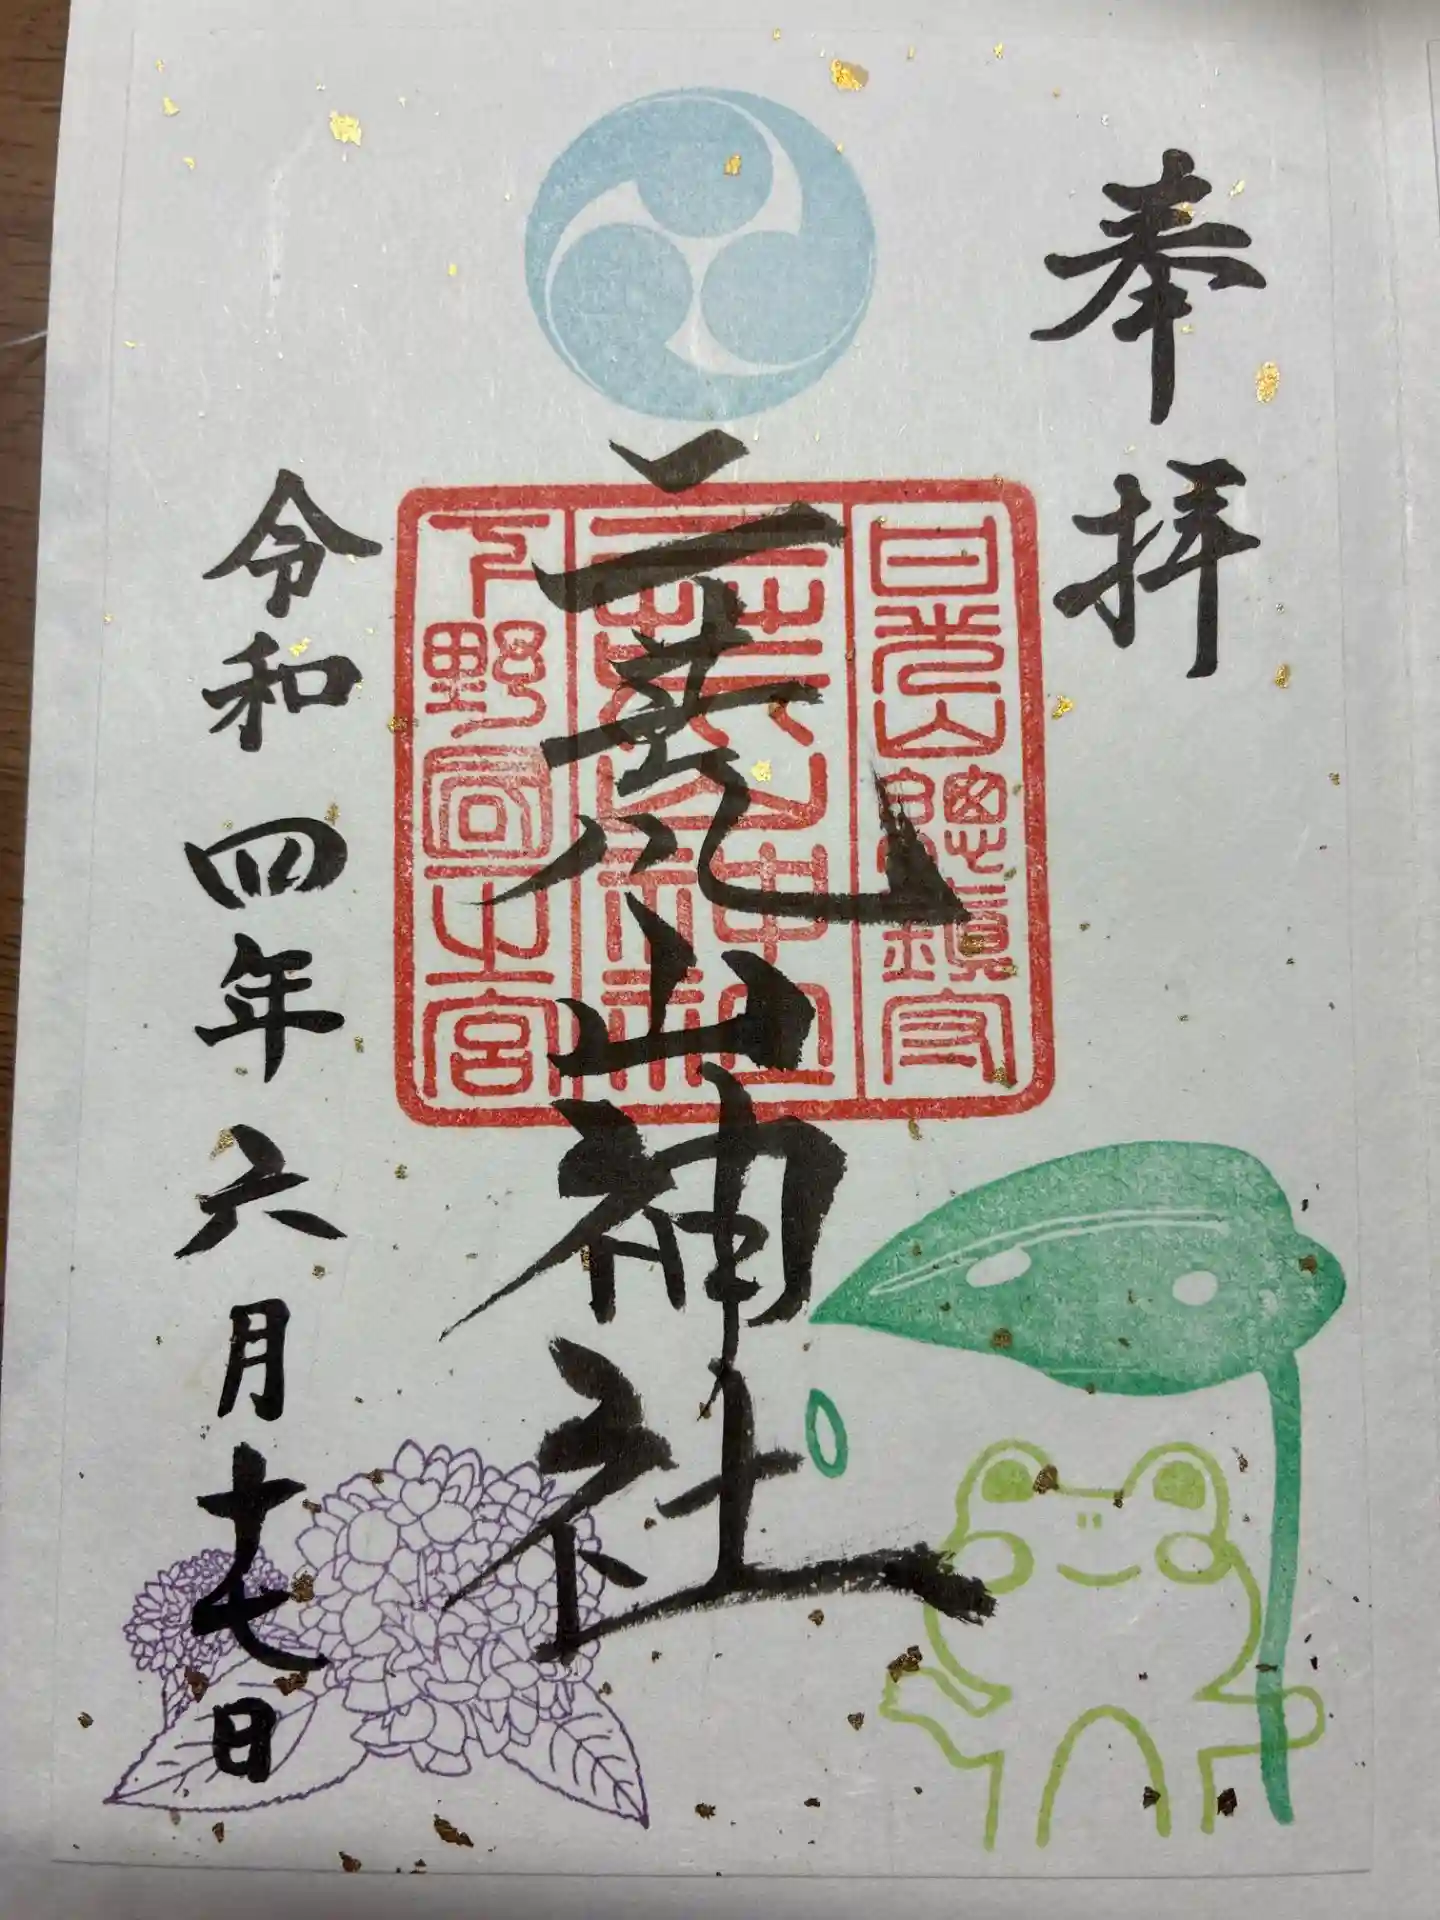 奉拝
日光山總鎮守
二荒山神社
下野國一之宮
二荒山神社
令和四年六月十七日